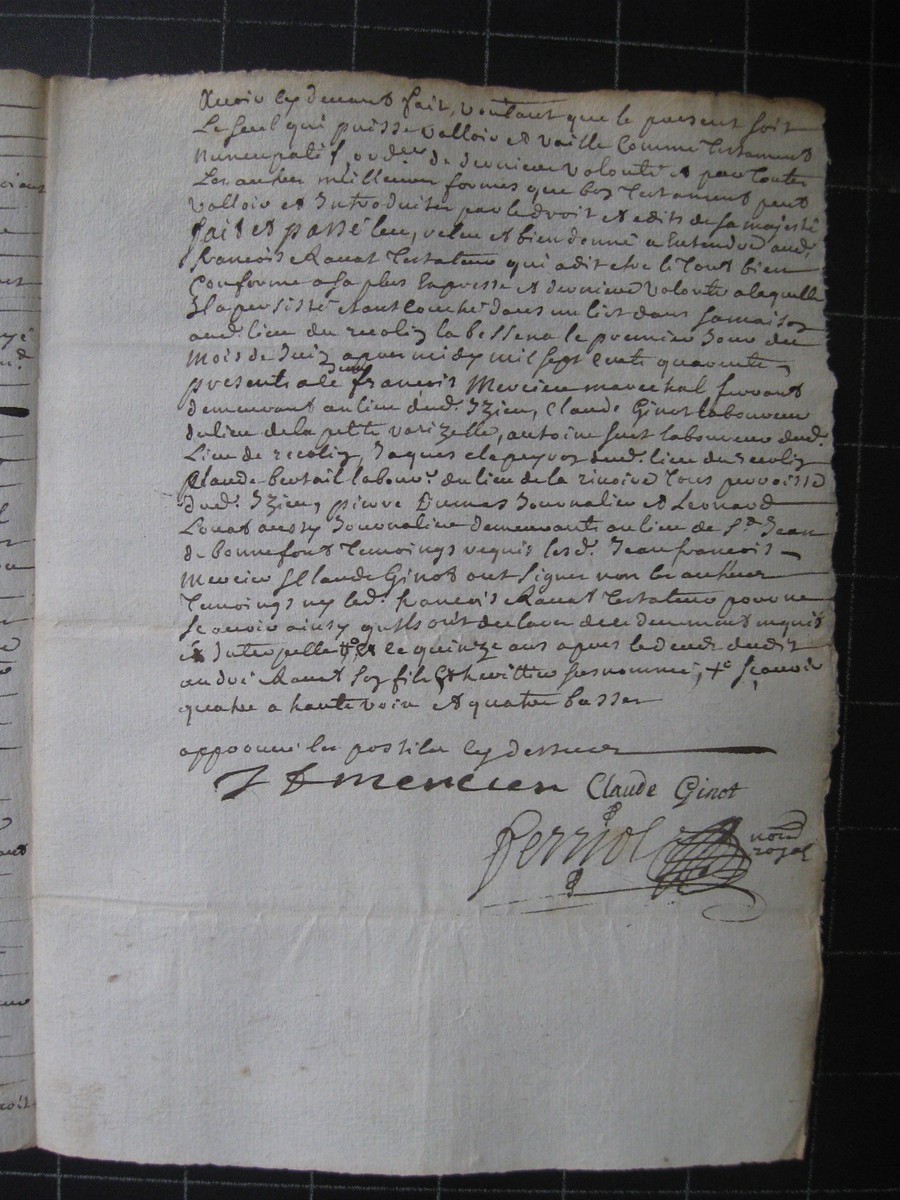 Avoir cy devant fait, voulant que le present soit
Le seul qui puisse valloir et vaille Comme Testament
Nuncupatif, ou de derniere volonté et par toutes
Les autres meilleures formes que bon Testament peut
valloir et Introduites par le droit et edits de sa majesté
fait et passé leu, releu et bien donné a Entendre aud.
francois Ravat Testateur qui a dit etre le tout bien
Conforme a sa plus Expresse et derniere volonté a laquelle
Il a persisté etant couché dans un lict dans sa maison
aud. lieu du la bessena le premier Jour du
Mois de Juin apres midy mil sept cents quarente
presents Jean francois Mercier marechal ferrant
demeurant au lieu dud. Izieu, Claude Ginot laboureur
du lieu de la petite varizelle, antoine laboureur dud.
Lieu de Jaques aud. lieu du
Claude bertail labour. du lieu de la rivoire Tous parroisse
dud. Izieu, pierre Dumas Journalier et Leonard
Louat aussy Journalier demeurants au lieu de St. Jean
de bonnefont Temoings requis lesd. Jean francois
Mercier et Claude Ginot ont signer non les autres
Temoings ny led. francois Ravat Testateur pour ne
scavoir ainsy quils ont declarer de ce deuement requis
et Interpelle et quinze ans apres le deced dudit
andré Ravat son fils et heritier susnommé, scavoir
quatre a haute voix et quatre basses
approuvé les postilles cy dessus
J f mercier Claude Ginot
ferriol
royal